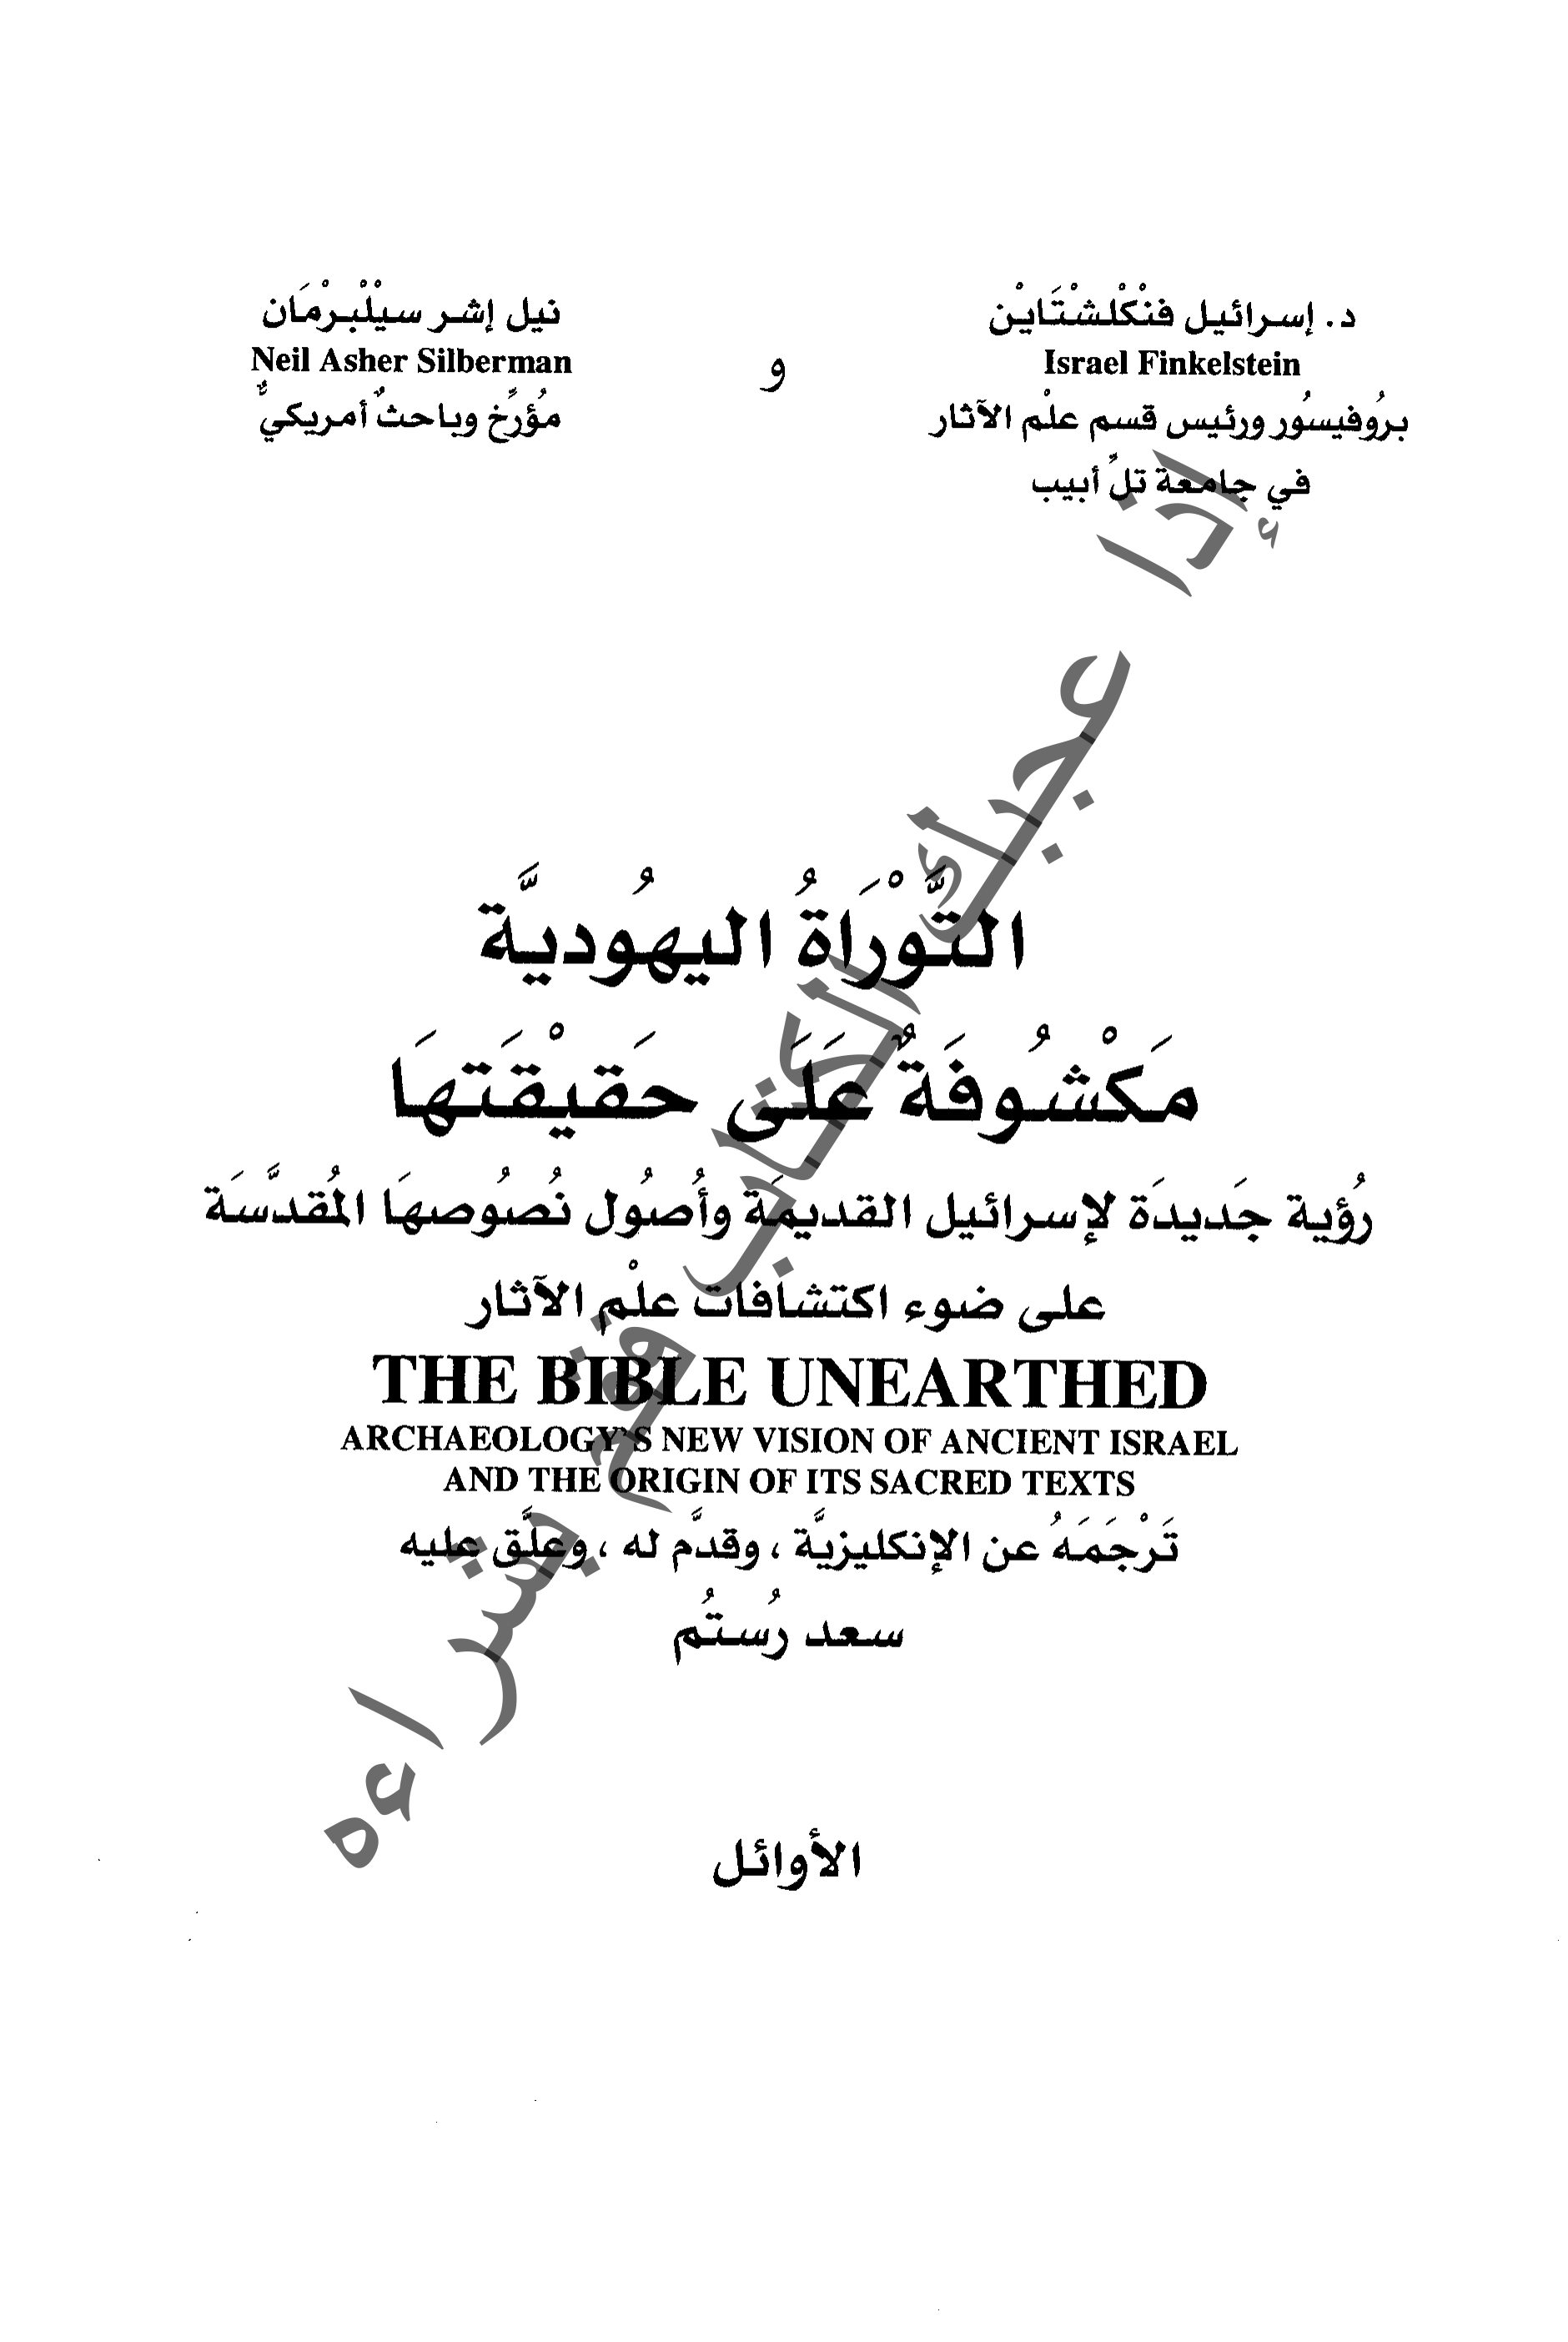 د. إسرائيل فنْكْلشْتَايْن
Israel Finkelstein
برُوفيسُور ورئيس قسم علْم الآثار
في جامعة تلّ أبيب
و
نيل إشر سيْلْبرْمَان
Neil Asher Silberman
مُؤرِّخ وباحثٌ أمريكيٌّ
التَّوْرَاةُ اليهُوديَّة
مَكْشُوفَةٌ عَلَى حَقيْقَتهَا
رُؤية جَديدَة لإسرائيل القديمَة وأُصُول نُصُوصهَا المُقدَّسَة
على ضوء اكتشافات علْم الآثار
THE BIBLE UNEARTHED
ARCHAEOLOGY'S NEW VISION OF ANCIENT ISRAEL
AND THE ORIGIN OF ITS SACRED TEXTS
تَرْجَمَهُ عن الإنكليزيَّة ، وقدَّم له ، وعلَّق عليه
سعد رُستُم
الأوائل
إذا عجبك الكتاب قم بشراءه